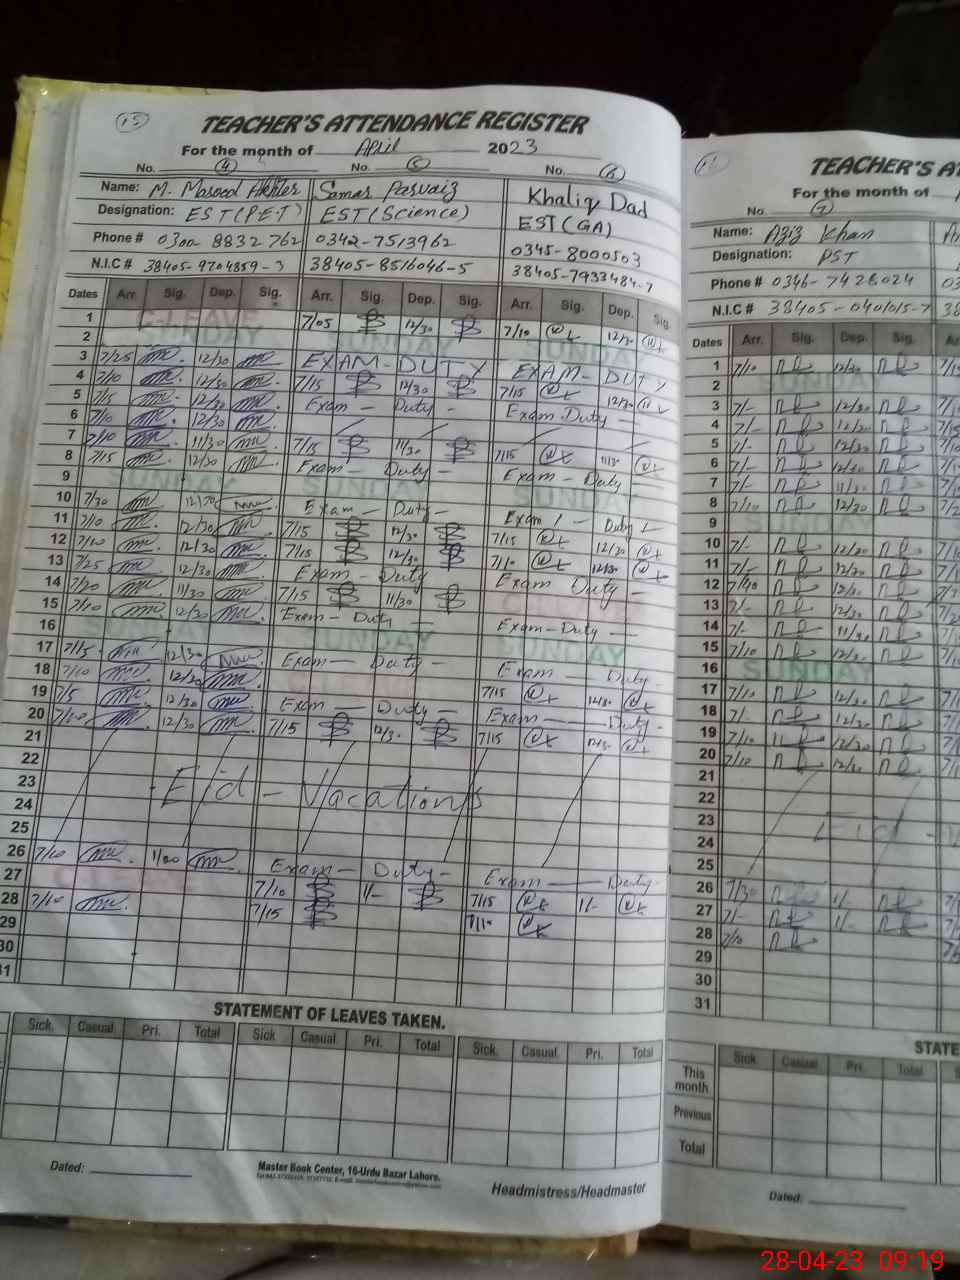 15
TEACHER'S ATTENDANCE REGISTER
For the month of April 2023
No. 4 No. 5 No. 6
Name: M. Masood Akhter Samar Parvaiz Khaliq Dad
Designation: EST(P.E.T) EST(Science) EST(GA)
Phone # 0300-8832762 0342-7513962 0345-8000503
N.I.C # 38405-9704859-3 38405-8516046-5 38405-7933484-7
Dates Arr. Sig. Dep. Sig. Arr. Sig. Dep. Sig. Arr. Sig. Dep. Sig.
1 C-LEAVE 7/05 12/30 7/10 12/30
2 SUNDAY SUNDAY SUNDAY
3 7/25 12/30 EXAM-DUTY EXAM-DUTY
4 7/10 12/30 7/15 12/30 7/15 12/30
5 7/15 12/30 Exam - Duty - Exam Duty -
6 7/10 12/30
7 7/10 11/30 7/15 11/30 7/15 11/30
8 7/15 12/30 Exam - Duty - Exam - Duty -
9 SUNDAY SUNDAY SUNDAY
10 7/30 12/30 Exam - Duty - Exam - Duty -
11 7/10 12/30 7/15 12/30 7/15 12/30
12 7/10 12/30 7/15 12/30 7/10 12/30
13 7/25 12/30 Exam - Duty Exam Duty -
14 7/20 11/30 7/15 11/30 C-LEAVE
15 7/10 12/30 Exam - Duty - Exam - Duty -
16 SUNDAY SUNDAY SUNDAY
17 7/15 12/30 Exam - Duty - Exam - Duty -
18 7/10 12/30 7/15 12/30
19 7/5 12/30 Exam - Duty - Exam - Duty -
20 7/10 12/30 7/15 12/30 7/15 12/30
21
22
23 Eid - Vacations
24
25
26 7/10 1/20 Exam - Duty - Exam - Duty -
27 C-LEAVE 7/10 1/- 7/15 1/-
28 7/10 7/15 7/10
29
30
31
STATEMENT OF LEAVES TAKEN.
Sick. Casual. Pri. Total Sick Casual Pri. Total Sick. Casual Pri. Total
Dated:
Master Book Center, 16-Urdu Bazar Lahore.
Headmistress/Headmaster
TEACHER'S
For the month of
No. 7
Name: Aziz Khan
Designation: PST
Phone # 0346-7428024
N.I.C # 38405-0401015-7
Dates Arr. Sig. Dep. Sig.
1 7/10 12/30
2 SUNDAY
3 7/- 12/30
4 7/- 12/30
5 7/- 12/30
6 7/- 12/30
7 7/- 11/30
8 7/10 12/30
9 SUNDAY
10 7/- 12/30
11 7/- 12/30
12 7/10 12/30
13 7/- 12/30
14 7/- 11/30
15 7/10 12/30
16 SUNDAY
17 7/10 12/30
18 7/- 12/30
19 7/10 12/30
20 7/10 12/30
21
22
23 Eid -
24
25
26 7/30 1/-
27 7/- 1/-
28 7/10
29
30
31
Sick Casual Pri. Total
This month
Previous
Total
Dated:
28-04-23 09:19